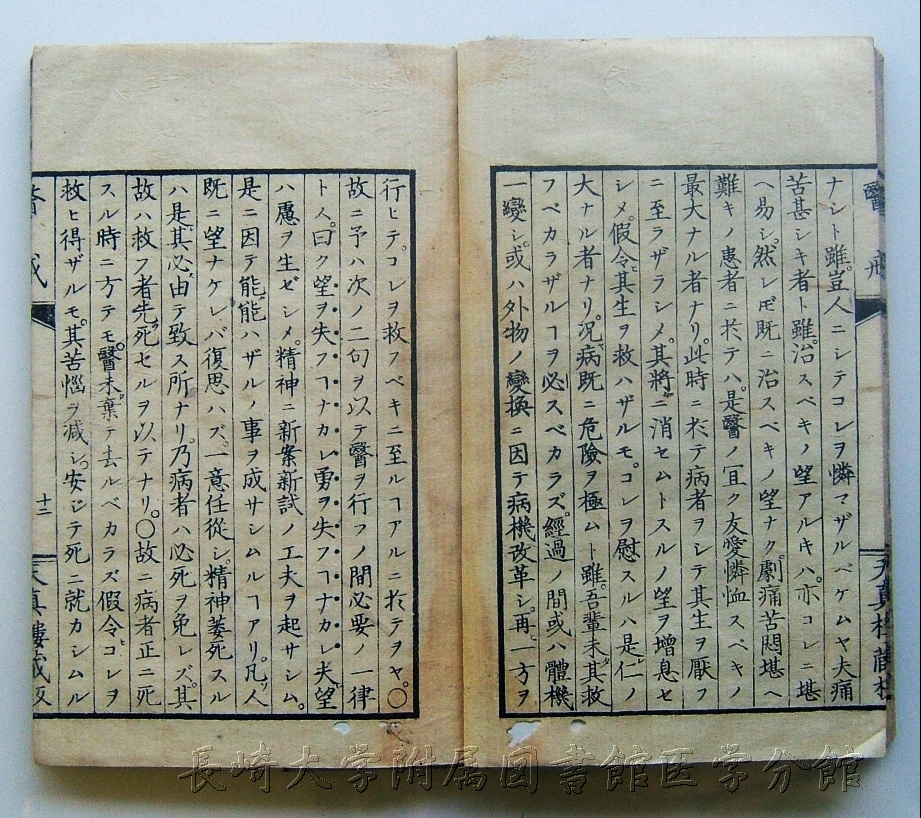 醫戒
ナシト雖。豈人ニシテコレヲ憐マザルベケムヤ夫痛
苦甚シキ者ト雖。治スベキノ望アルキハ。亦コレニ堪
ヘ易シ。然レ𪜈既ニ治スベキノ望ナク。劇痛苦悶堪ヘ
難キノ患者ニ於テハ。是醫ノ宜ク友愛憐恤スベキノ
最大ナル者ナリ。此時ニ於テ病者ヲシテ其生ヲ厭フ
ニ至ラザラシメ。其將ニ消セムトスルノ望ヲ增息セ
シメ。假令其生ヲ救ハザルモ。コレヲ慰スルハ是仁ノ
大ナル者ナリ。況病既ニ危險ヲ極ムト雖。吾輩未其救
フベカラザルヿヲ必スベカラズ。經過ノ間或ハ體機
一變シ。或ハ外物ノ變換ニ因テ病機改革シ。再一方ヲ
天真樓藏板
行ヒテ。コレヲ救フベキニ至ルヿアルニ於テヲヤ。〇
故ニ予ハ次ノ二句ヲ以テ醫ヲ行フノ間必要ノ一律
トス。曰ク望ヲ失フヿナカレ勇ヲ失フヿナカレ夫望
ハ慮ヲ生ゼシメ。精神ニ新案新試ノ工夫ヲ起サシム。
是ニ因テ能能ハザルノ事ヲ成サシムルヿアリ。凡人
既ニ望ナケレバ復思ハズ。一意任從シ。精神萎死スル
ハ是其必由テ致ス所ナリ。乃病者ハ必死ヲ免レズ。其
故ハ救フ者先死セルヲ以テナリ。〇故ニ病者正ニ死
スル時ニ方テモ。醫未棄テ去ルベカラズ假令コレヲ
救ヒ得ザルモ。其苦惱ヲ減シ。安ジテ死ニ就カシムル
醫戒
十二
天真樓藏板
長崎大学附属図書館医学分館